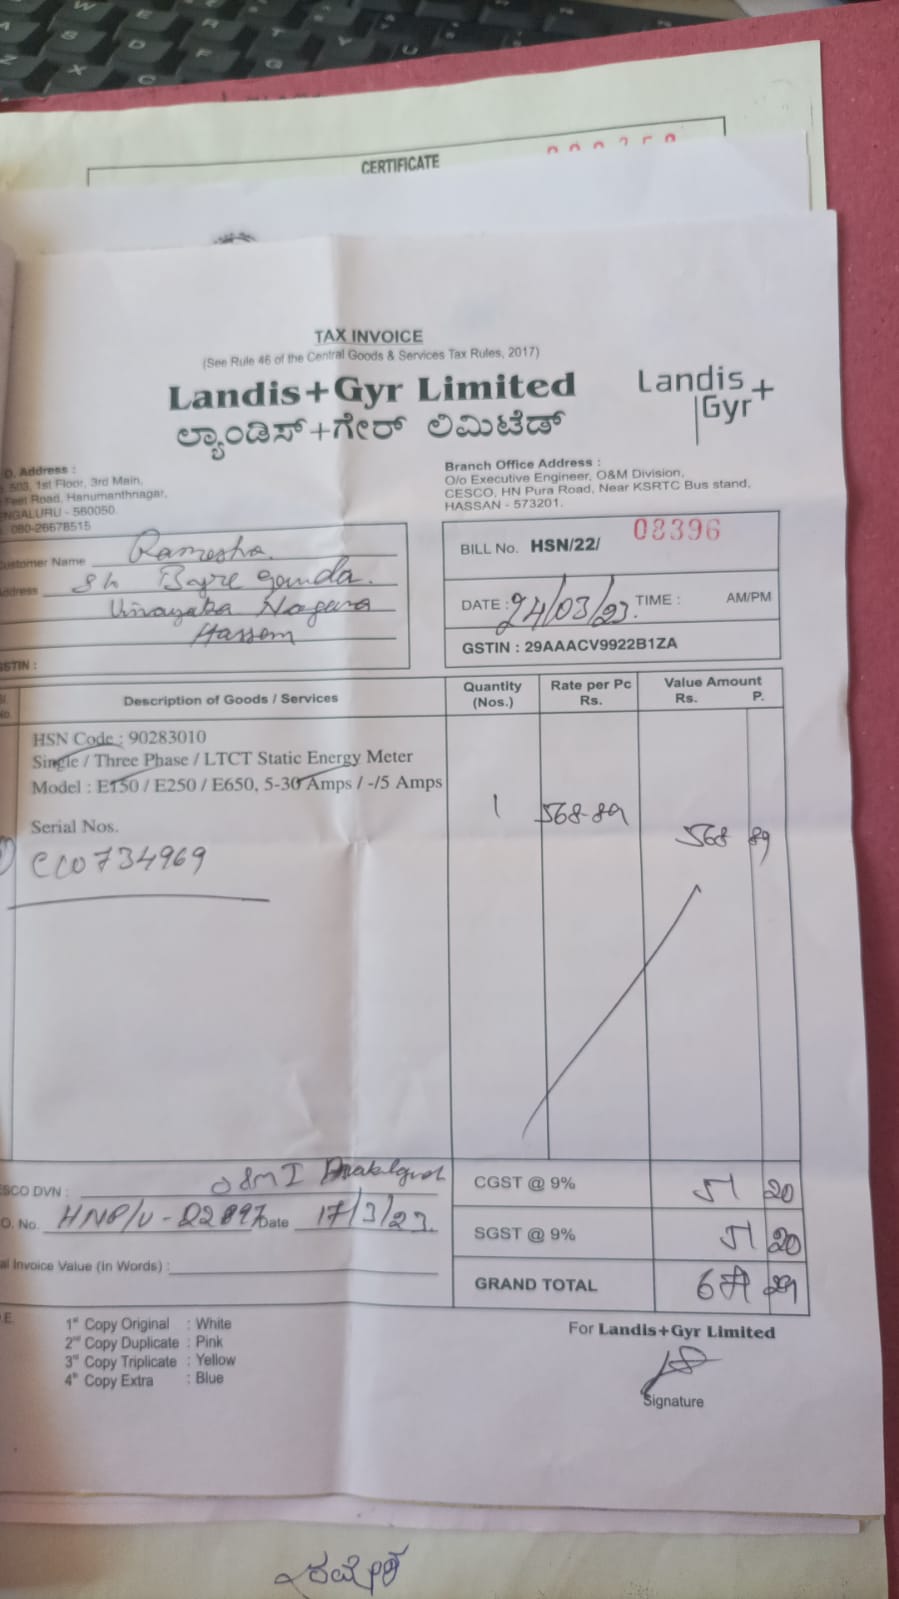 CERTIFICATE
TAX INVOICE
(See Rule 46 of the Central Goods & Services Tax Rules, 2017)
Landis+Gyr Limited
ಲ್ಯಾಂಡಿಸ್+ಗೇರ್ ಲಿಮಿಟೆಡ್
Landis+
Gyr
O. Address :
503, 1st Floor, 3rd Main,
Feet Road, Hanumanthnagar,
NGALURU - 560050.
080-26678515
Branch Office Address :
O/o Executive Engineer, O&M Division,
CESCO, HN Pura Road, Near KSRTC Bus stand,
HASSAN - 573201.
ustomer Name Ramesha.
ddress S/o Byre gowda.
Vinayaka Nagara
Hassan
GSTIN :
BILL No. HSN/22/ 08396
DATE : 24/03/23 TIME : AM/PM
GSTIN : 29AAACV9922B1ZA
No. Description of Goods / Services Quantity (Nos.) Rate per Pc Rs. Value Amount Rs. P.
HSN Code : 90283010
Single / Three Phase / LTCT Static Energy Meter
Model : E150 / E250 / E650, 5-30 Amps / -/5 Amps
1 568-89 568 89
Serial Nos.
CC0734969
ESCO DVN : O&M I
CGST @ 9% 51 20
O. No. HNP/U-22897 Date 17/3/23.
SGST @ 9% 51 20
al Invoice Value (In Words) :
GRAND TOTAL
1st Copy Original : White
2nd Copy Duplicate : Pink
3rd Copy Triplicate : Yellow
4th Copy Extra : Blue
For Landis+Gyr Limited
Signature
ರಮೇಶ